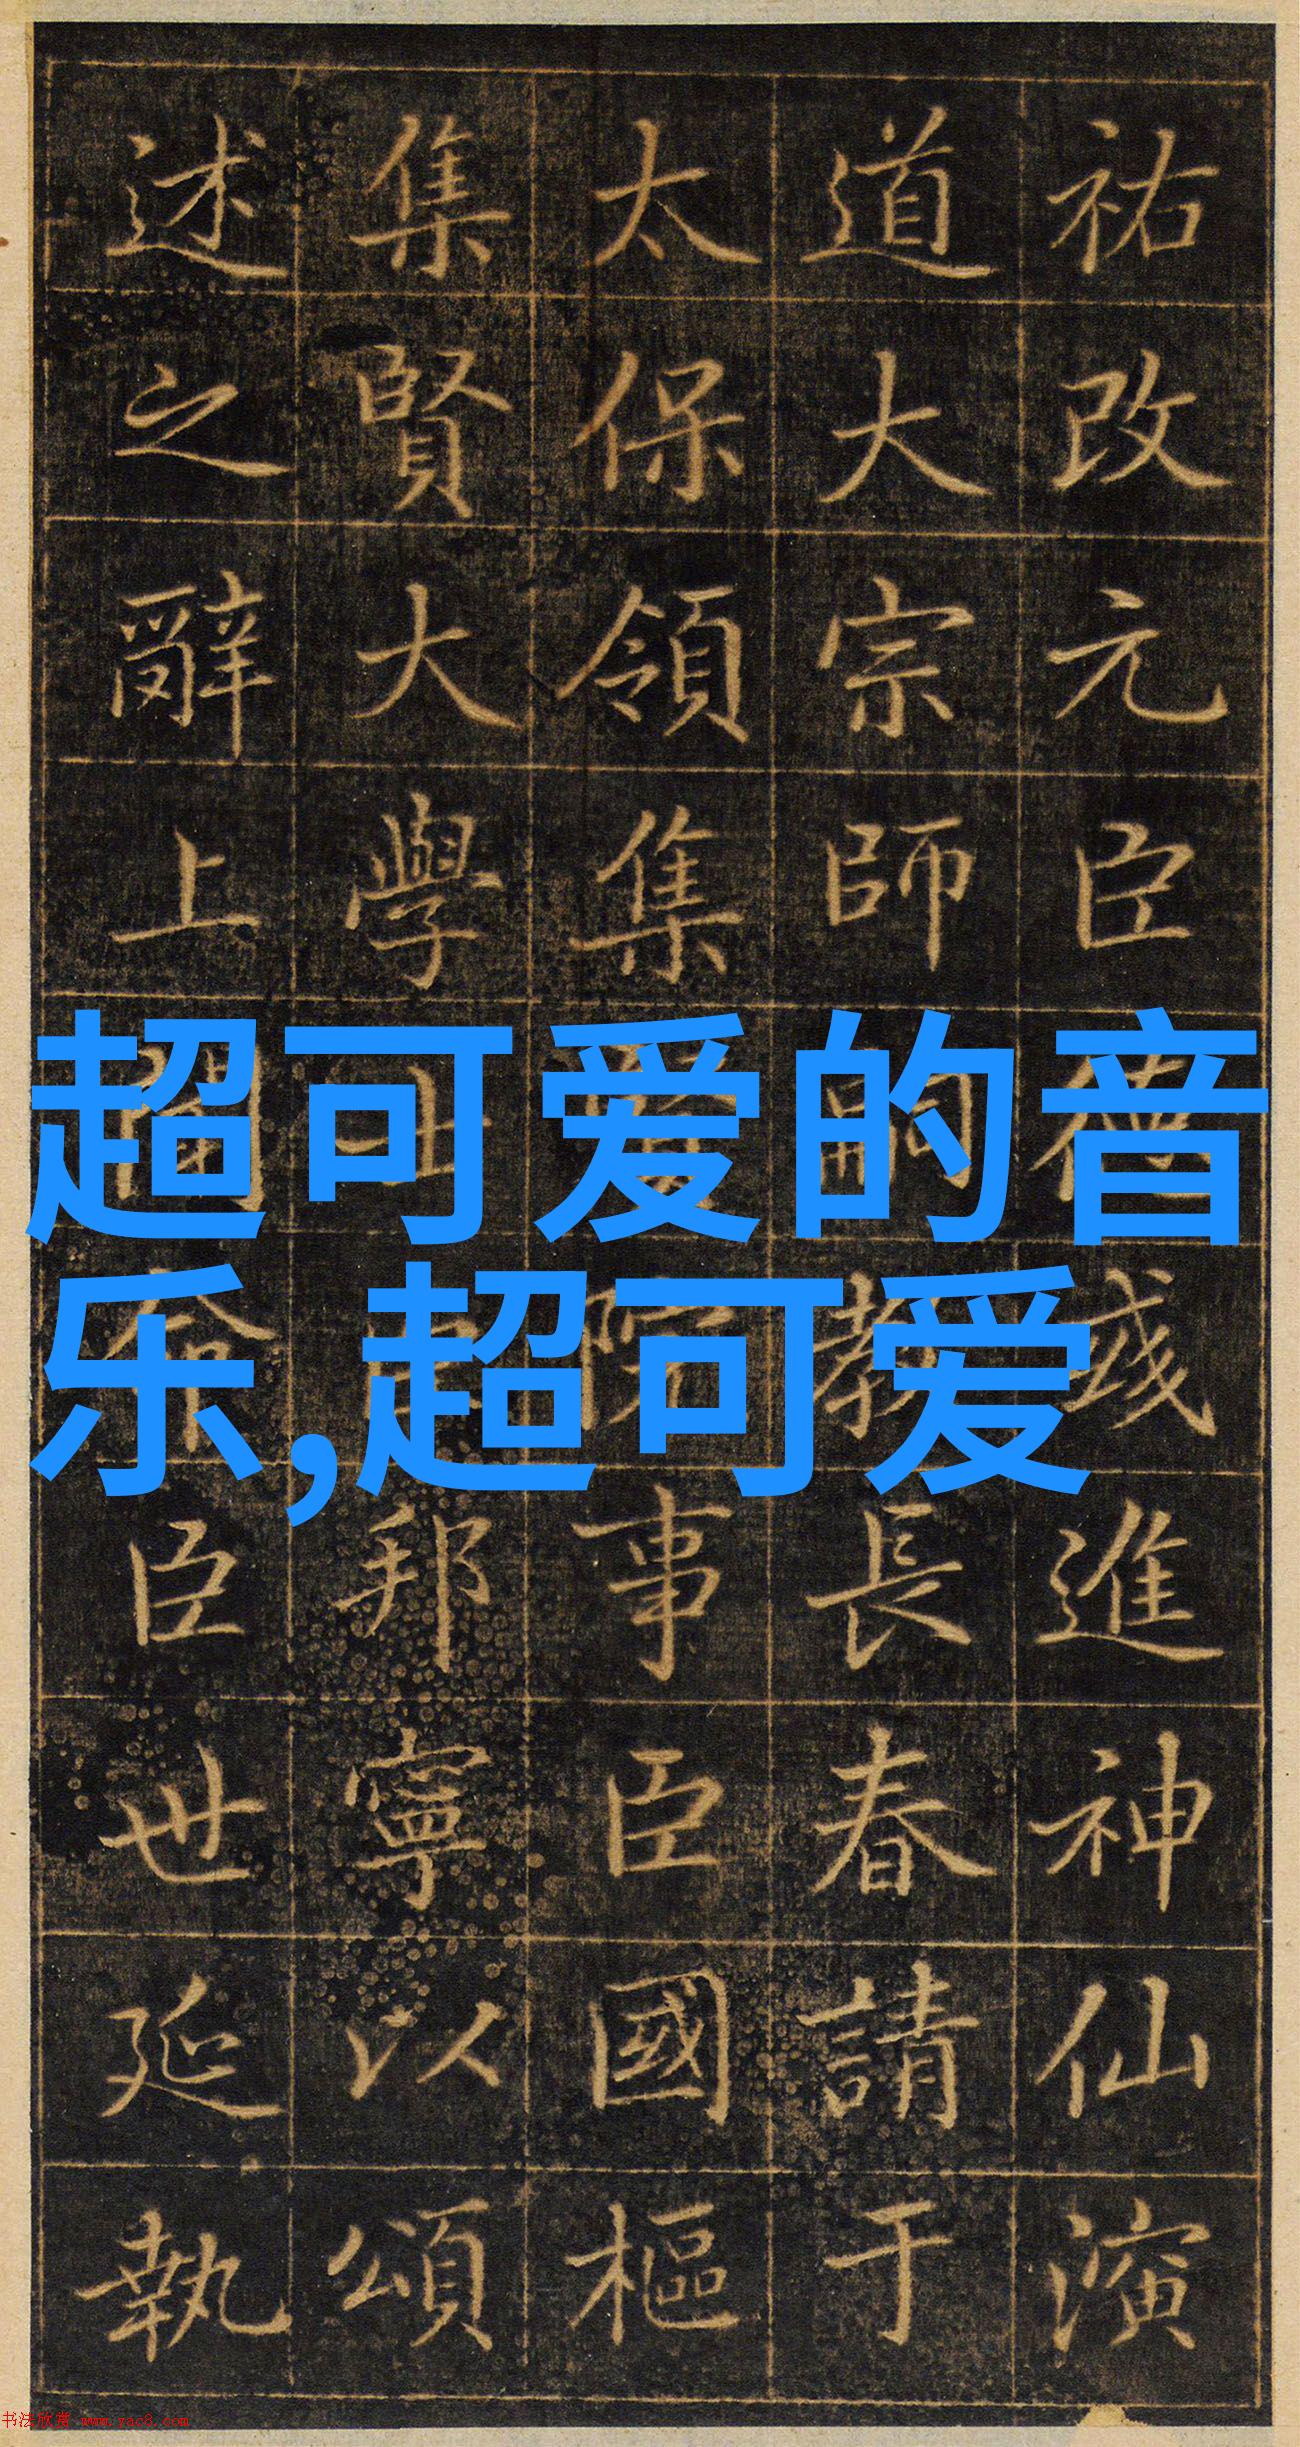 祐改元臣德彧進神仙演
道大宗師嗣教長春請于
太保領集賢院事臣國樞
集賢大學士臣邦寧以頌
述之辭上聞命臣世延執
超可爱的音
乐,超可爱
书法欣赏 www.yac8.com